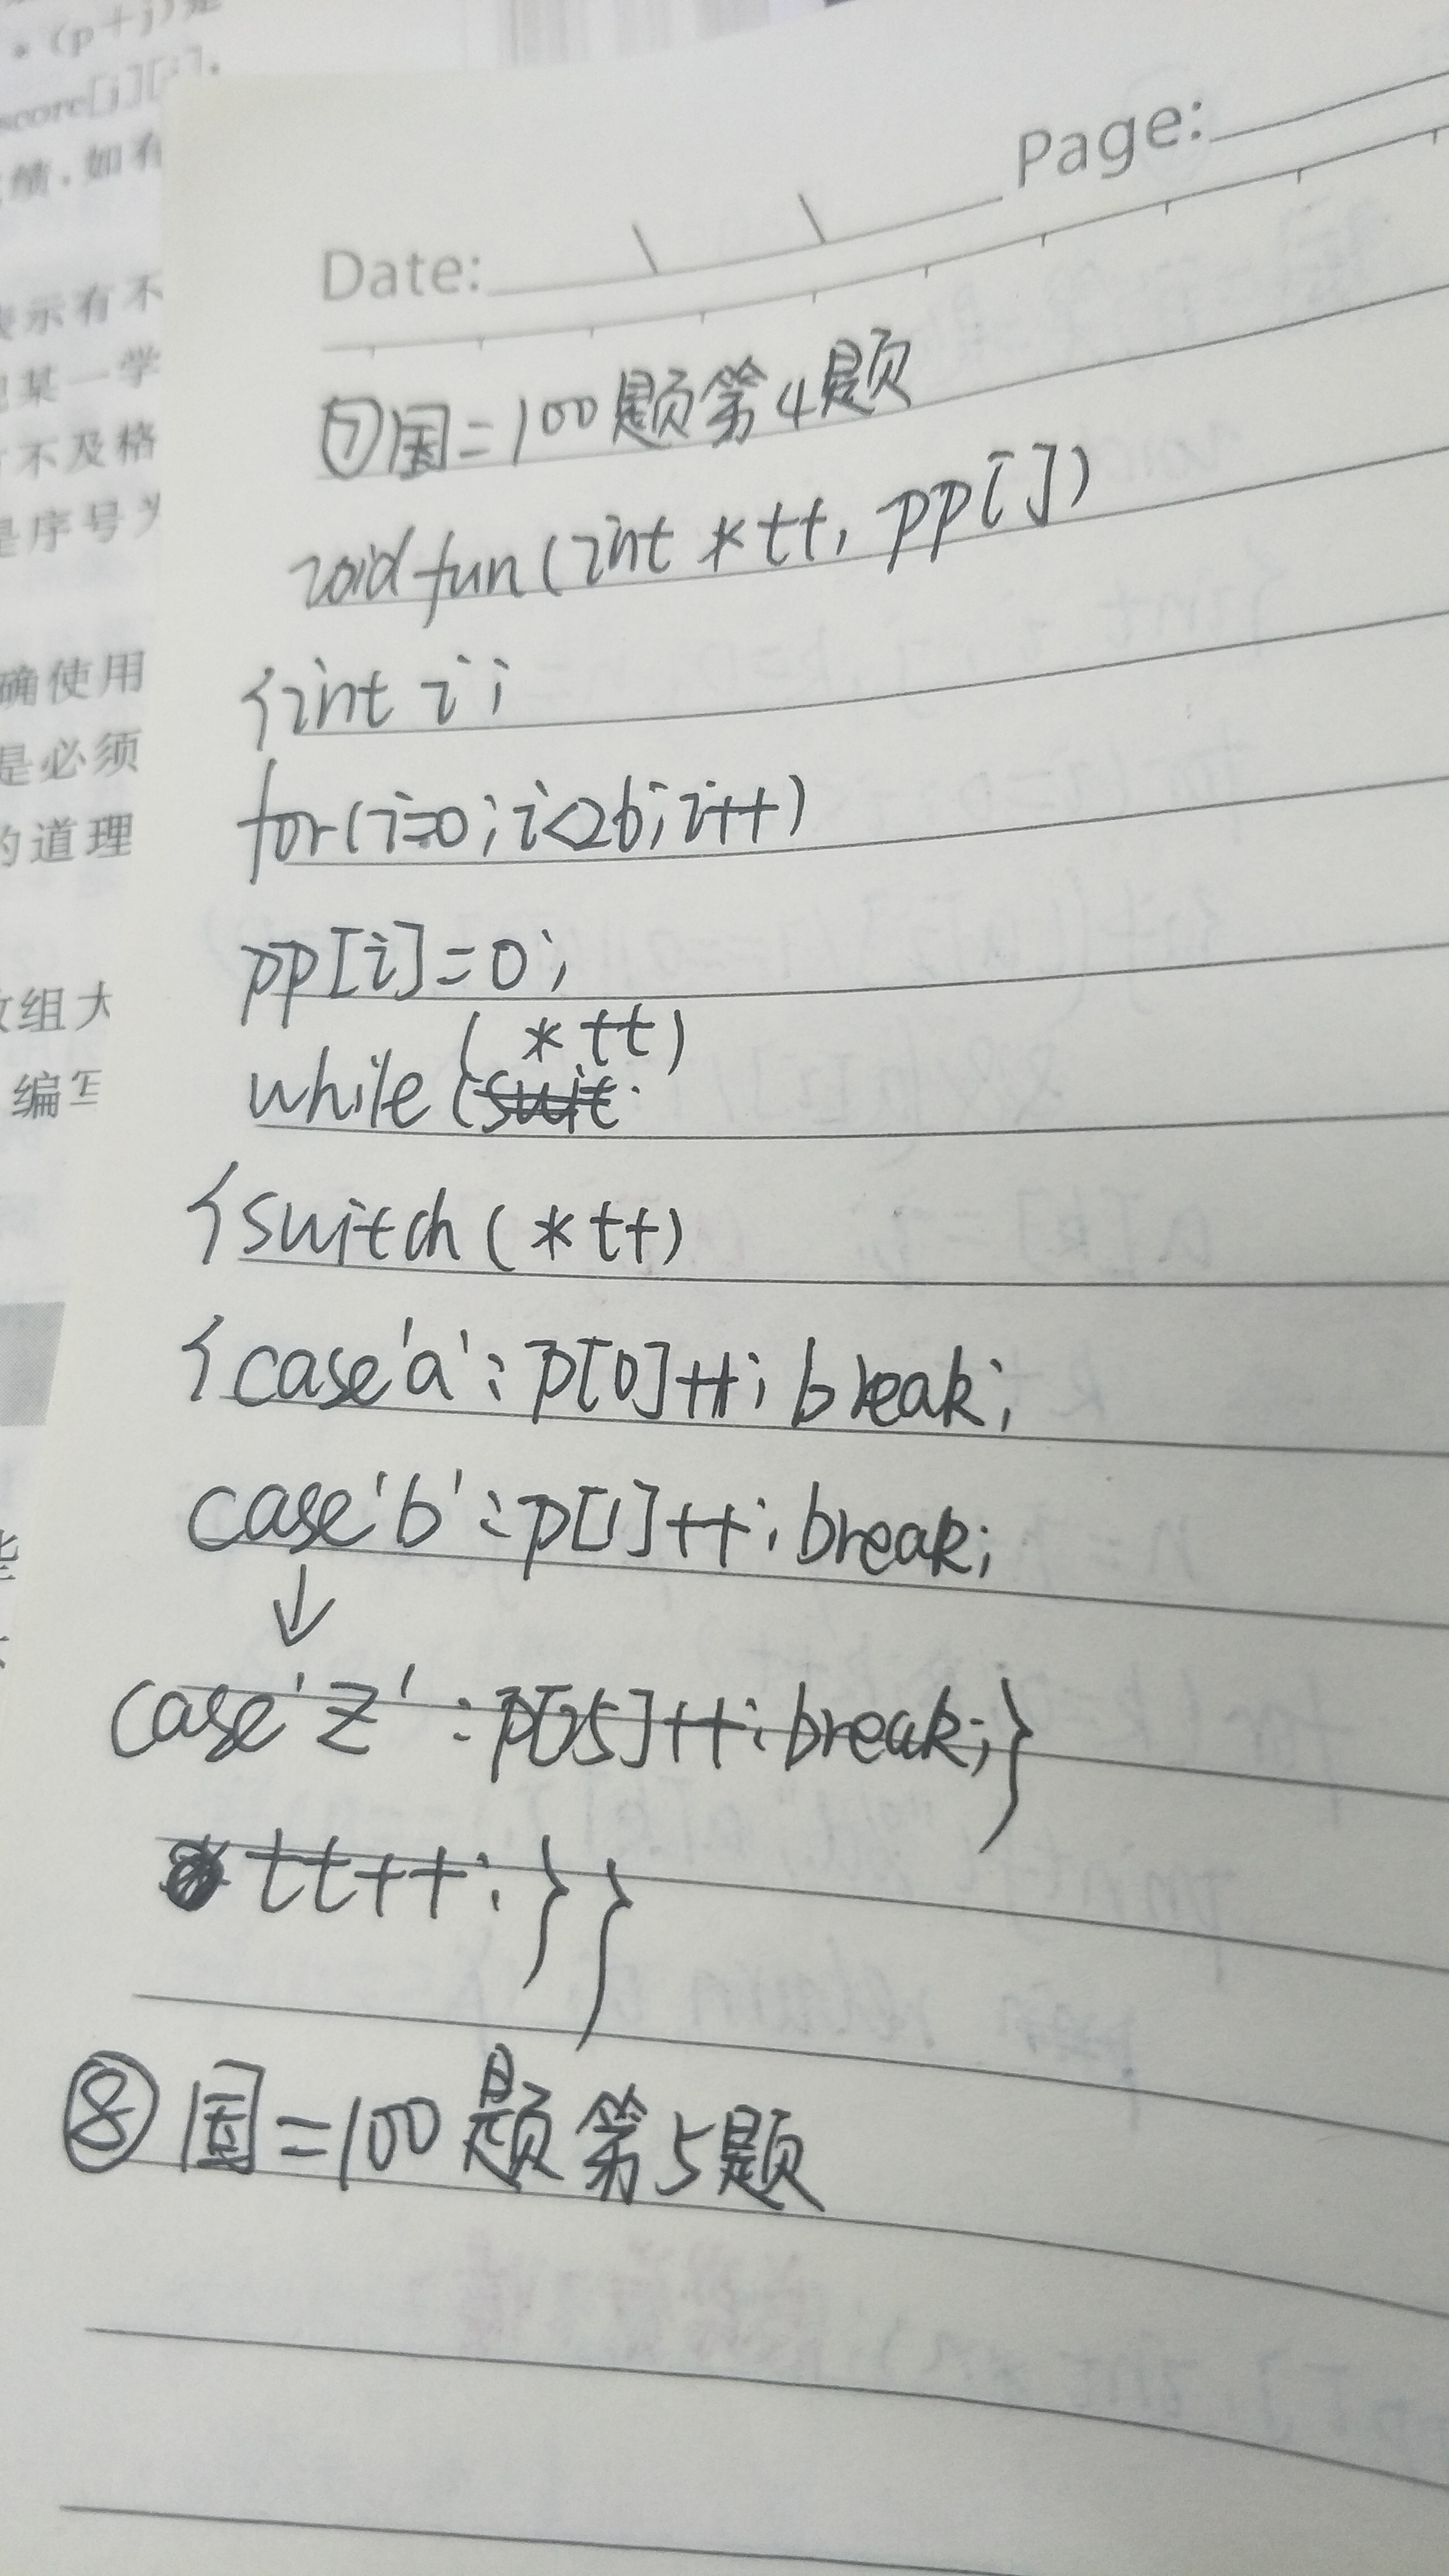 *(p+j)是
score[j][i].
绩.如有
表示有不
某一学
不及格
是序号为
确使用
是必须
的道理
数组大
编写
Date:
Page:
⑦国=100题第4题
void fun(int *tt, pp[])
{int i;
for(i=0;i<26;i++)
pp[i]=0;
(*tt)
while(suit
{switch(*tt)
{case'a':p[0]++;break;
case'b':p[1]++;break;
↓
case'z':p[25]++;break;}
tt++;}}
⑧国=100题第5题